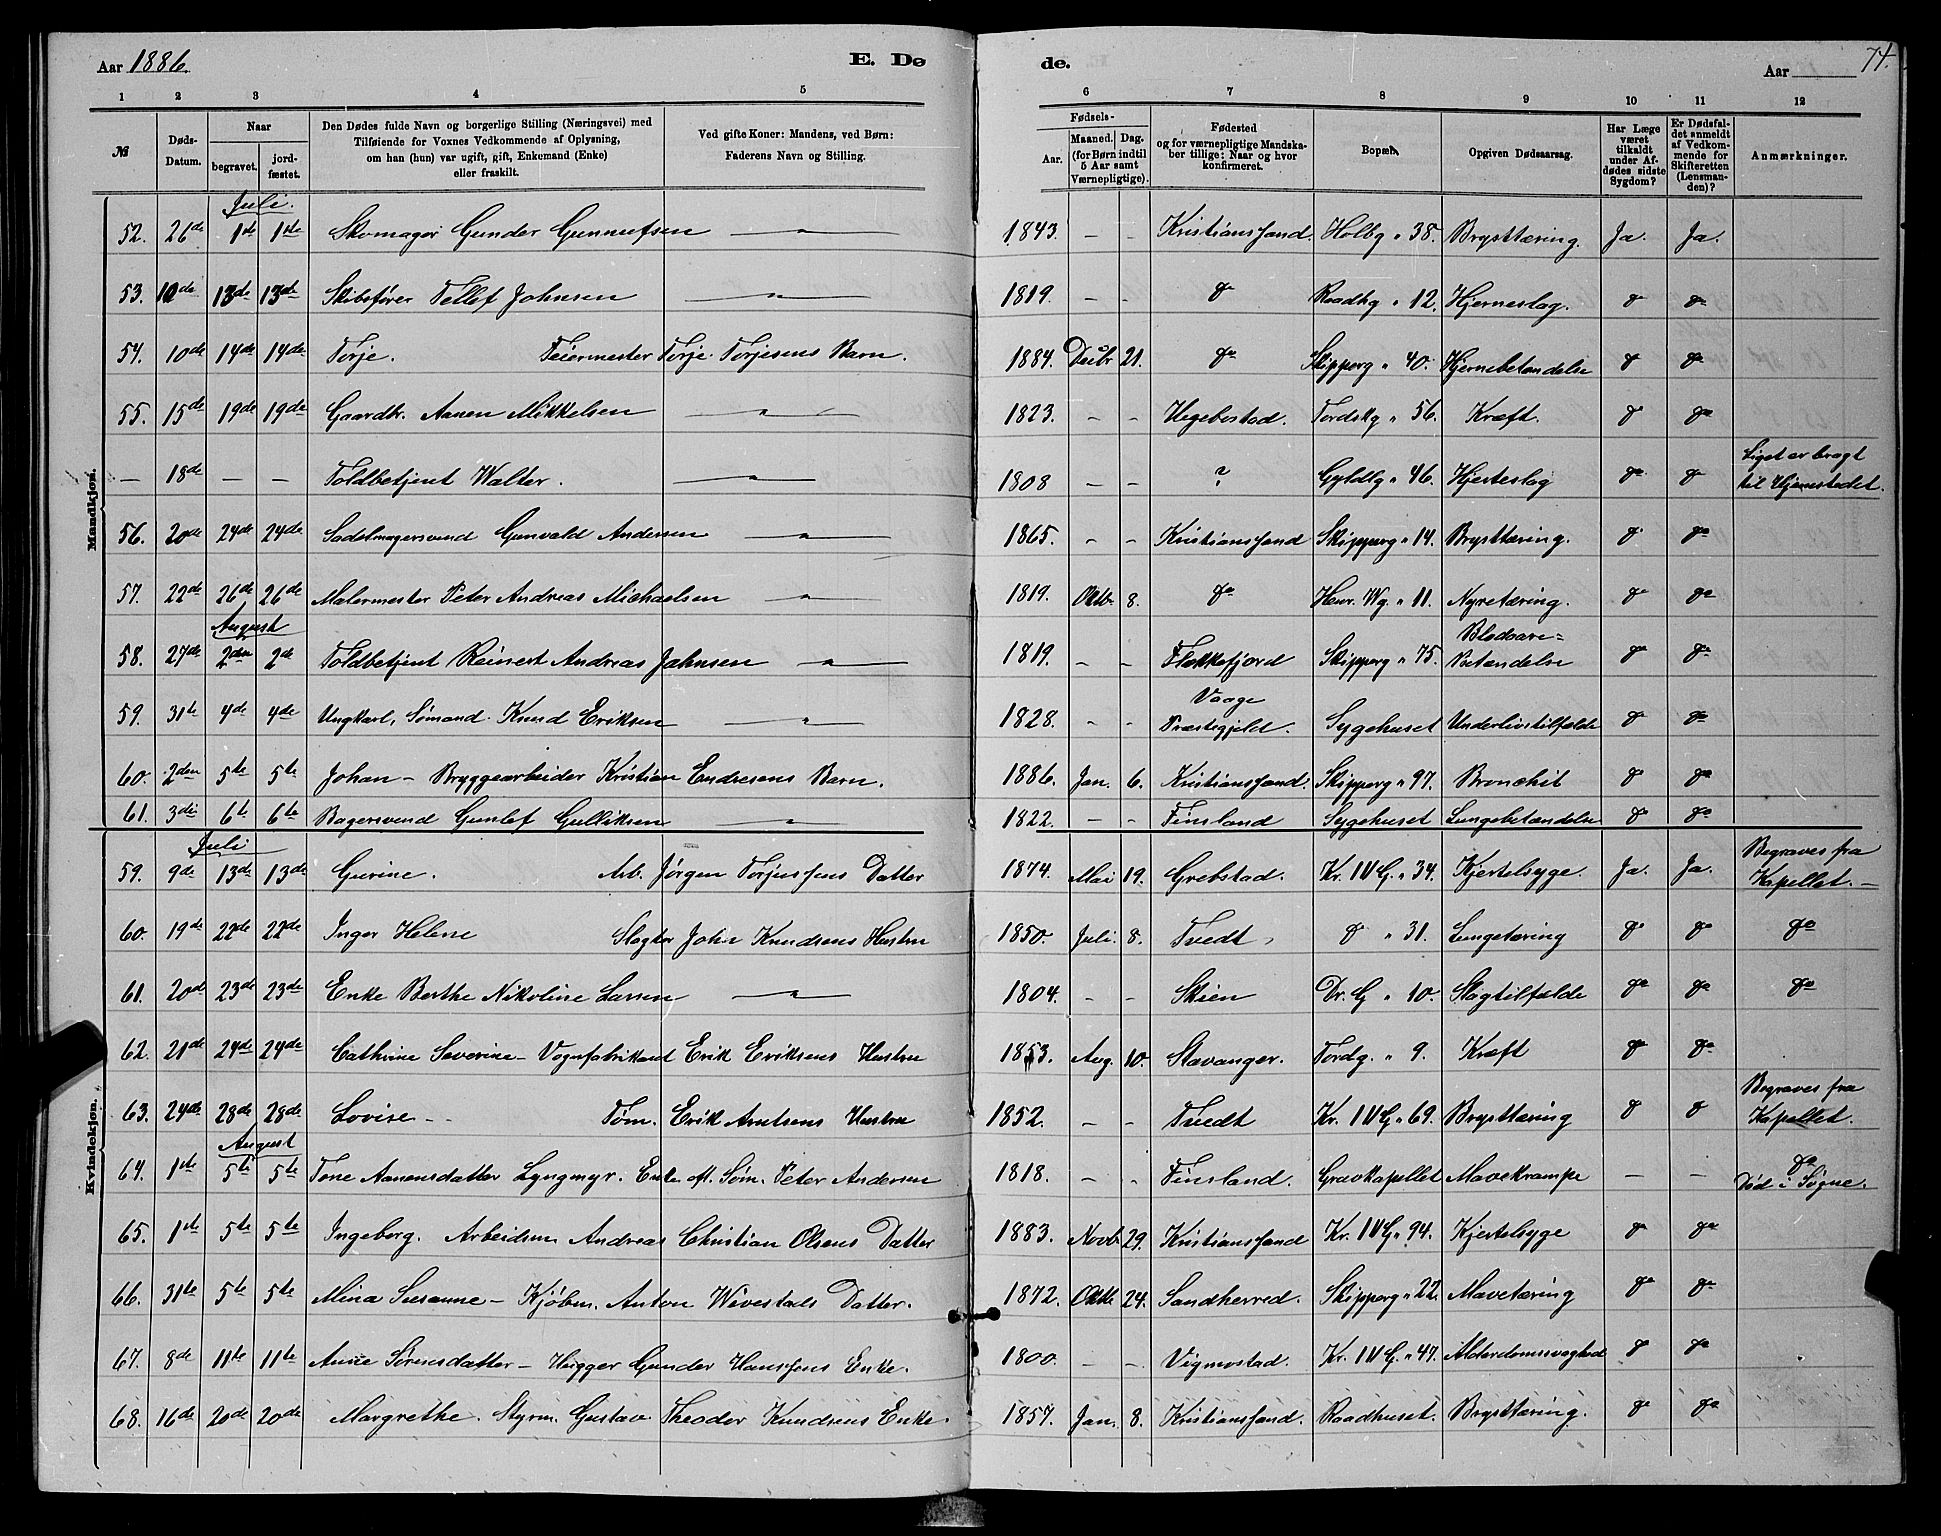 Aar 1886. E. Dø de. Aar 74.
1 2 3 4 5 6 7 8 9 10 11 12
№ Døds-Datum. Naar begravet. jordfæstet. Den Dødes fulde Navn og borgerlige Stilling (Næringsvei) med Tilføiende for Voxnes Vedkommende af Oplysning, om han (hun) var ugift, gift, Enkemand (Enke) eller fraskilt. Ved gifte Koner: Mandens, ved Børn: Faderens Navn og Stilling. Fødsels- Aar. Maaned. Dag. (for Børn indtil 5 Aar samt Værnepligtige). Fødested og for værnepligtige Mandskaber tillige: Naar og hvor konfirmeret. Bopæl. Opgiven Dødsaarsag. Har Læge været tilkaldt under Afdødes sidste Sygdom? Er Dødsfaldet anmeldt af Vedkommende for Skifteretten (Lensmanden)? Anmærkninger.
Mandkjøn.
Juli.
52. 26de 1ste 1ste Skomager Gunder Gunnufsen — " — 1843. – – Kristianssand. Holbg " 38. Brysttæring. Ja. Ja.
53. 10de 13de 13de Skibsfører Tellef Johnsen — " — 1819. – – do Raadhg " 12. Hjerneslag. do do
54. 10de 14de 14de Torje. Feiermester Torje Torjesens Barn. 1884. Decbr 21. do Skipperg " 40. Hjernebetændelse do do
55. 15de 19de 19de Gaardbr. Aanen Mikkelsen — " — 1823. – – Hegebostad. Tordskg " 56. Kræft. do do
– 18de – – Toldbetjent Walter. — " — 1808 – – ? Gyldlg " 46. Hjerteslag do do Liget er bragt til Hjemstedet.
56. 20de 24de 24de Sadelmagersvend Gunvald Andersen — " — 1865. – – Kristianssand Skipperg " 14. Brysttæring. do do
57. 22de 26de 26de Malermester Peter Andreas Michaelsen — " — 1819. Oktb. 8. do Henr. Wg. " 11. Nyretæring. do do
August
58. 27de 2den 2de Toldbetjent Reinert Andreas Jahnsen — " — 1819. – – Flekkefjord Skipperg " 75. Blodaare= Betændelse do do
59. 31te 4de 4de Ungkarl, Sømand. Knud Eriksen — " — 1828. – – Vaage Præstegjeld. Sygehuset Underlivstilfælde do do
60. 2den 5te 5te Johan – Bryggearbeider Kristian Endresens Barn. 1886. Jan. 6. Kristianssand. Skipperg " 97. Bronchit do do
61. 3die 6te 6te Bagersvend Gunlef Gulliksen — " — 1822. – – Finsland Sygehuset Lungebetændelse do do
Kvindekjøn.
Juli
59. 9de 13de 13de Gurine. Arb. Jørgen Torjussens Datter 1874. Mai 19. Grebstad. Kr. IV G. " 34. Kjertelsyge. Ja. Ja. Begraves fra Kapellet. –
60. 19de 22de 22de Inger Helene Slagter John Knudsens Hustru 1850. Juli. 8. Tvedt do " 31. Lungetæring do do do
61. 20de 23de 23de Enke Berthe Nikoline Larsen — " — 1804. – – Skien Dr. G " 10. Slagtilfælde do do do
62. 21de 24de 24de Cathrine Severine – Vognfabrikant Erik Eriksens Hustru 1853. Aug. 10. Stavanger. Tordg. " 9. Kræft do do
63. 24de 28de 28de Lovise – Tøm. Erik Arntsens Hustru 1852. – – Tvedt Kr. IV G " 69. Brysttæring do do Begraves fra Kapellet.
August
64. 1ste 5te 5te Tone Aanensdatter Lyngmyr. Enke af Søm. Peter Andersen 1818. – – Finsland. Gravkapellet Mavekrampe – – do Død i Søgne.
65. 1ste 5te 5te Ingeborg. Arbeidsm Andreas Christian Olsens Datter 1883. Novb 29. Kristianssand Kr. IV G " 94. Kjertelsyge do do
66. 31te 5te 5te Mina Susanne – Kjøbm. Anton Wivestads Datter. 1872. Oktb 24. Sandherred. Skipperg " 22. Mavetæring do do
67. 8de 11te 11te Anne Sørensdatter – Hugger Gunder Hanssens Enke. 1800. – – Vigmostad. Kr. IV G. " 47. Alderdomssvaghed do do
68. 16de 20de 20de Margrethe. Styrm. Gustav Theodor Knudsens Enke. 1857. Jan. 8. Kristianssand. Raadhuset. Brysttæring. do do